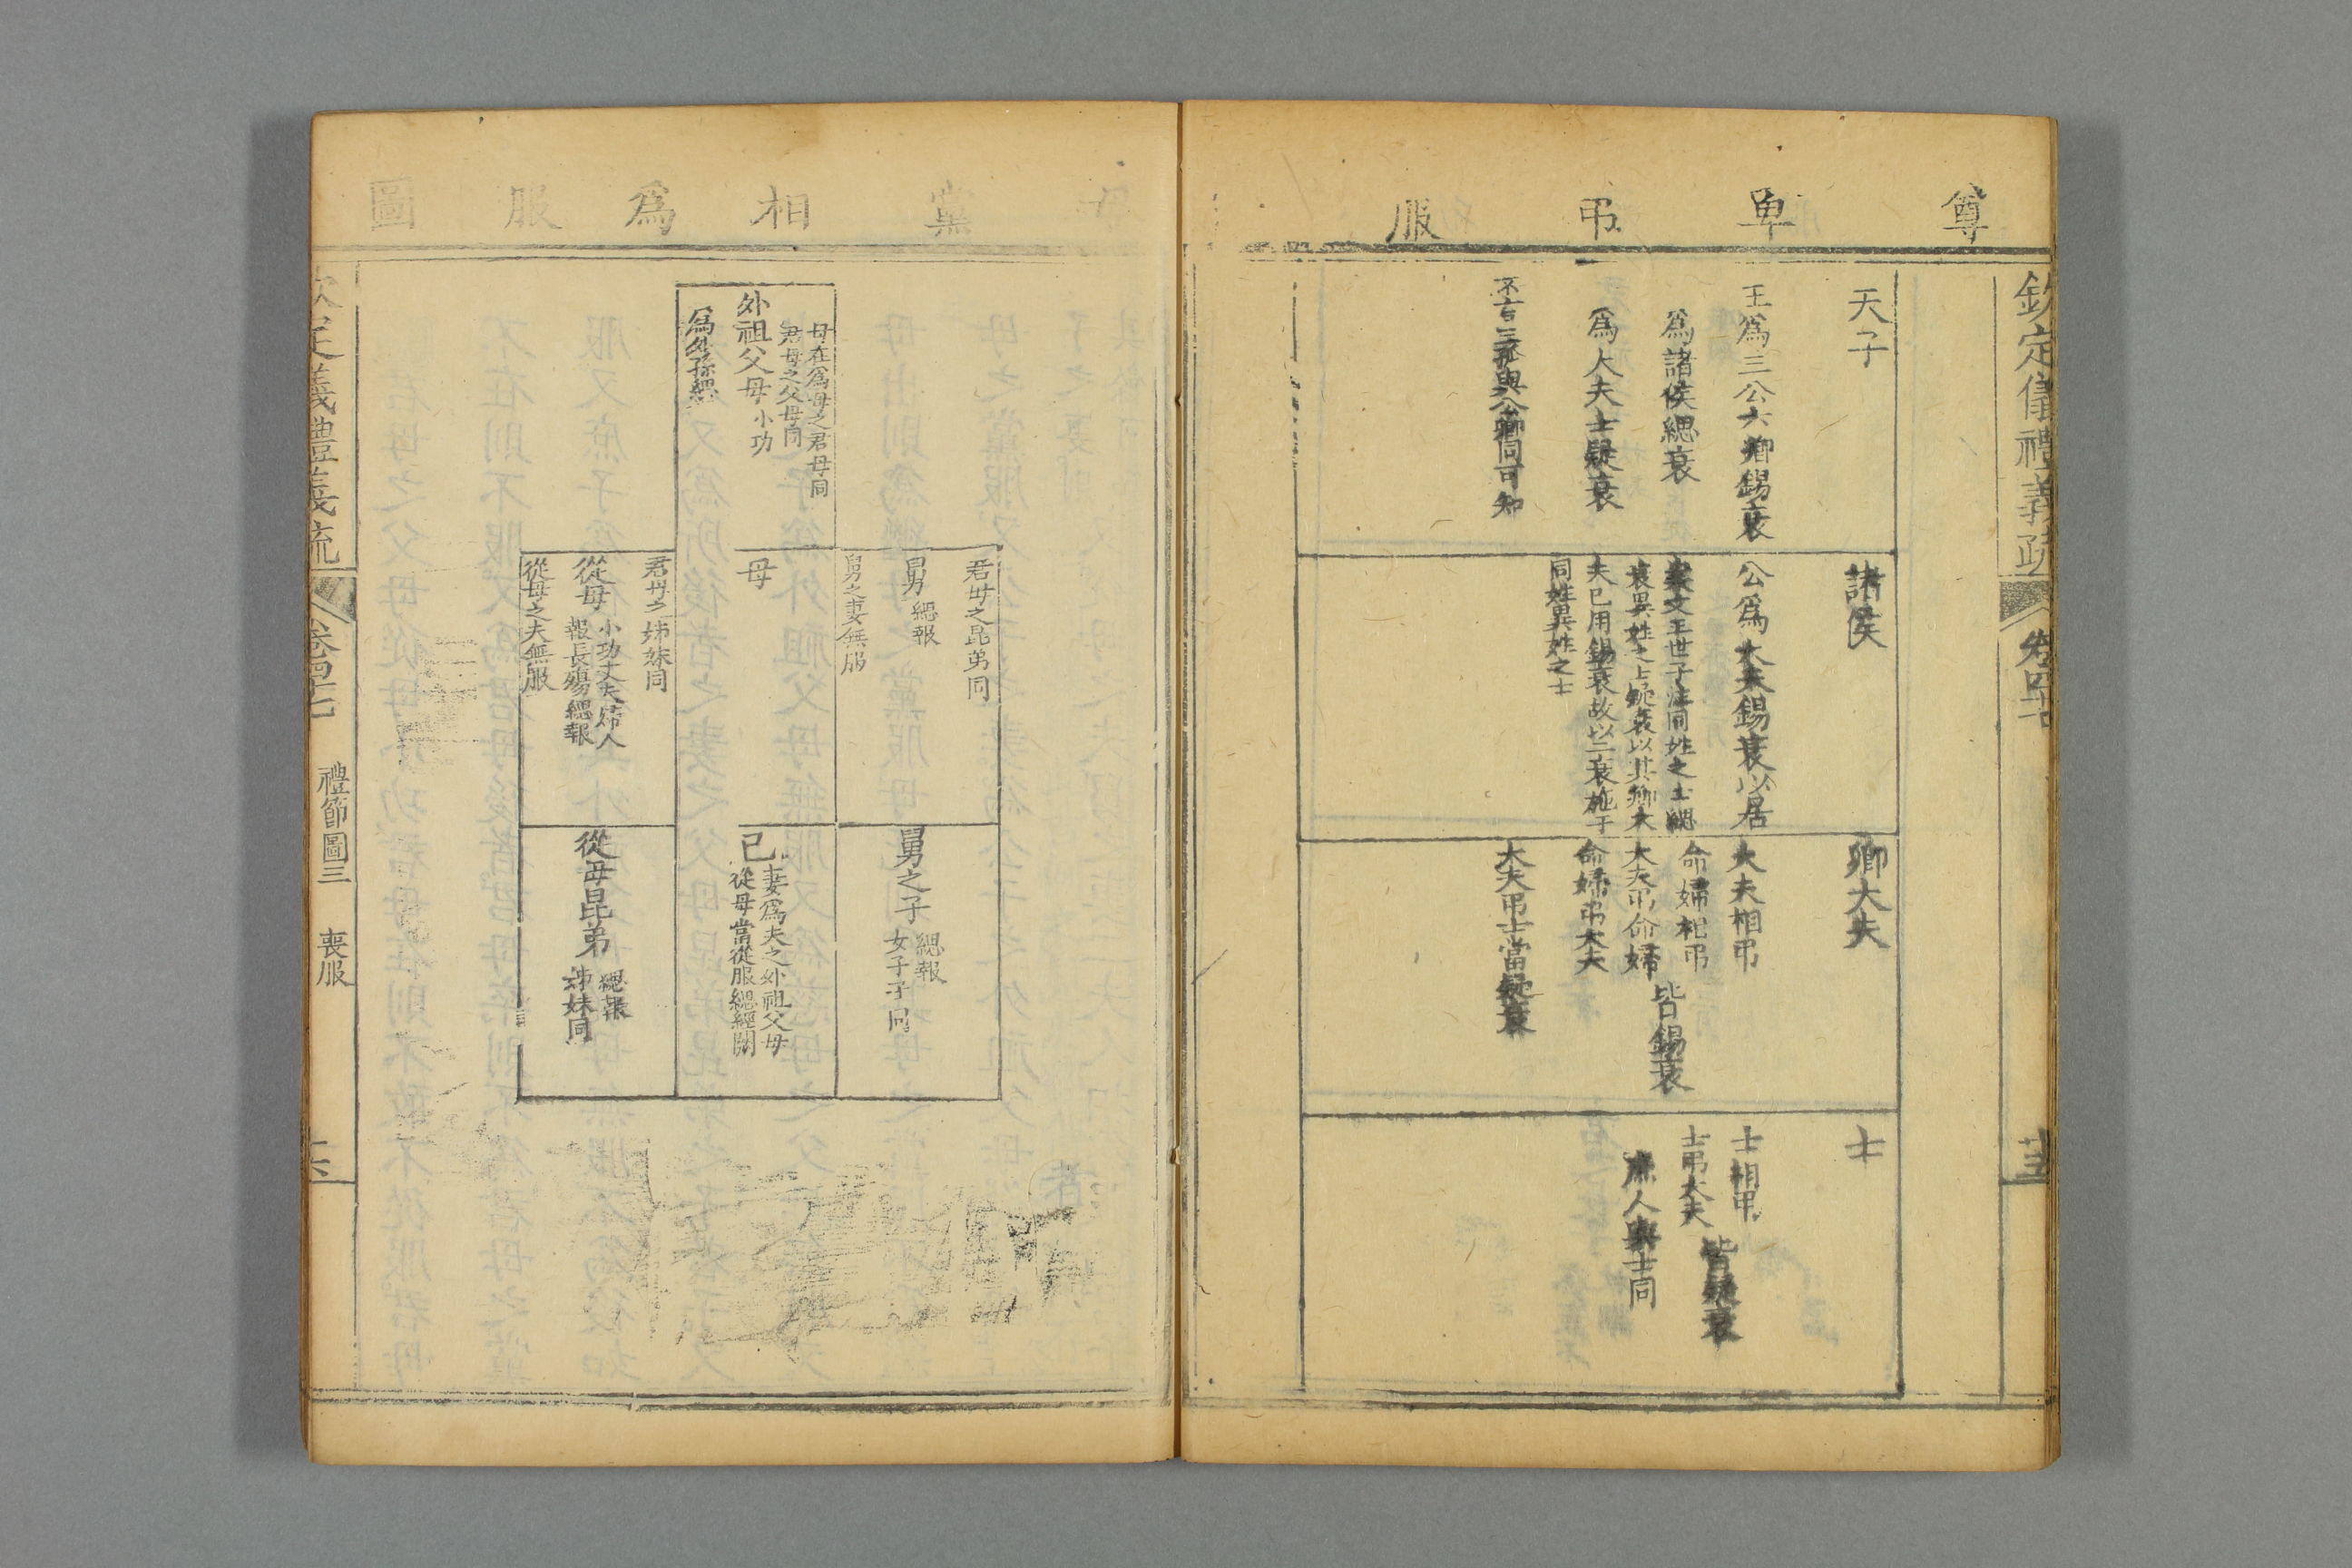 欽定儀禮義疏
卷四十七
十五
尊卑弔服
天子
王爲三公六卿錫衰
爲諸侯緦衰
爲大夫士疑衰
不言三孤與六卿同可知
諸侯
公爲大夫錫衰以居
案文王世子注同姓之士緦
衰異姓之士疑衰以其卿大
夫已用錫衰故以二衰施于
同姓異姓之士
卿大夫
大夫相弔
命婦相弔
大夫弔命婦
命婦弔大夫
皆錫衰
大夫弔士當疑衰
士
士相弔
士弔大夫
皆疑衰
庶人與士同
母黨相爲服圖
外祖父母小功
母在爲母之君母同
君母之父母同
爲外孫緦
君母之昆弟同
舅緦報
舅之妻無服
母
君母之姊妹同
從母小功丈夫婦人
報長殤緦報
從母之夫無服
舅之子緦報
女子子同
己妻爲夫之外祖父母
從母當從服緦經闕
從母昆弟緦報
姊妹同
欽定儀禮義疏
卷四十七
禮節圖三
喪服
十六